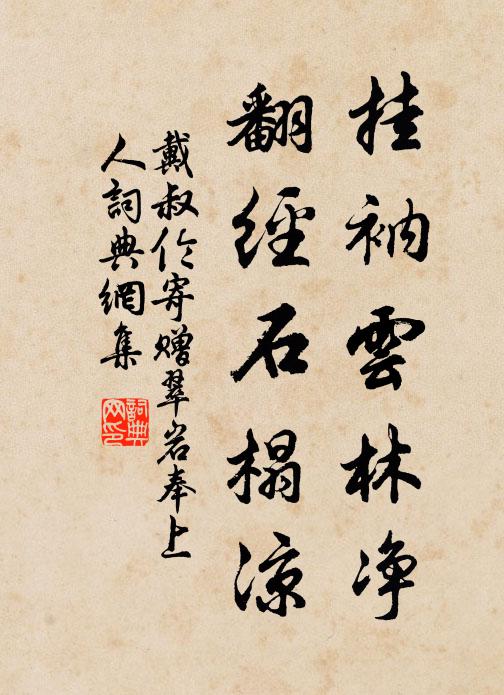 挂衲雲林净
翻經石榻凉
戴叔伦寄赠翠岩奉上
人詞典網集
詞典网印